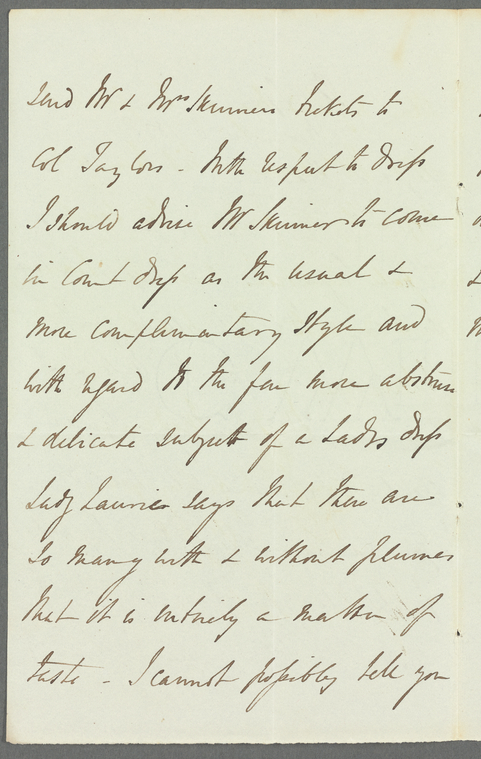 send Mr & Mrs Skinners tickets to
Col Taylors - With respect to dress
I should advise Mr Skinner to come
in Court dress as the usual &
more complimentary style and
with regard to the far more abstruse
& delicate subject of a Ladys dress
Lady Laurie says that there are
so many with & without plumes
that it is entirely a matter of
taste - I cannot possibly tell you